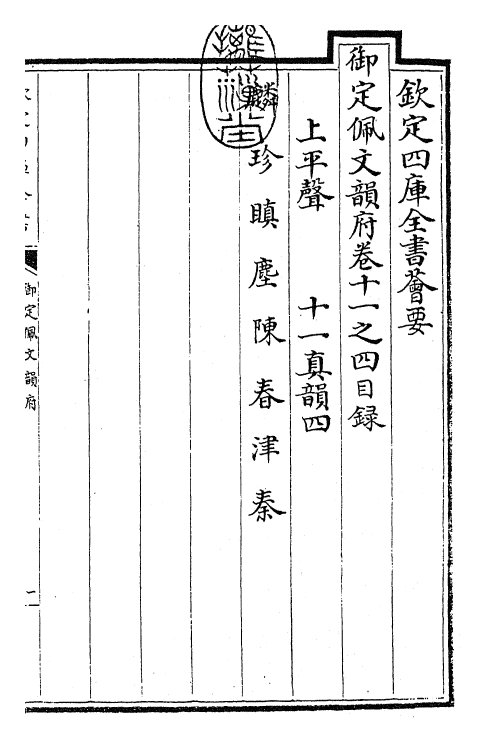 欽定四庫全書薈要
御定佩文韻府卷十一之四目録
上平聲　十一真韻四
麟珍瞋塵陳春津秦
御定佩文韻府
一